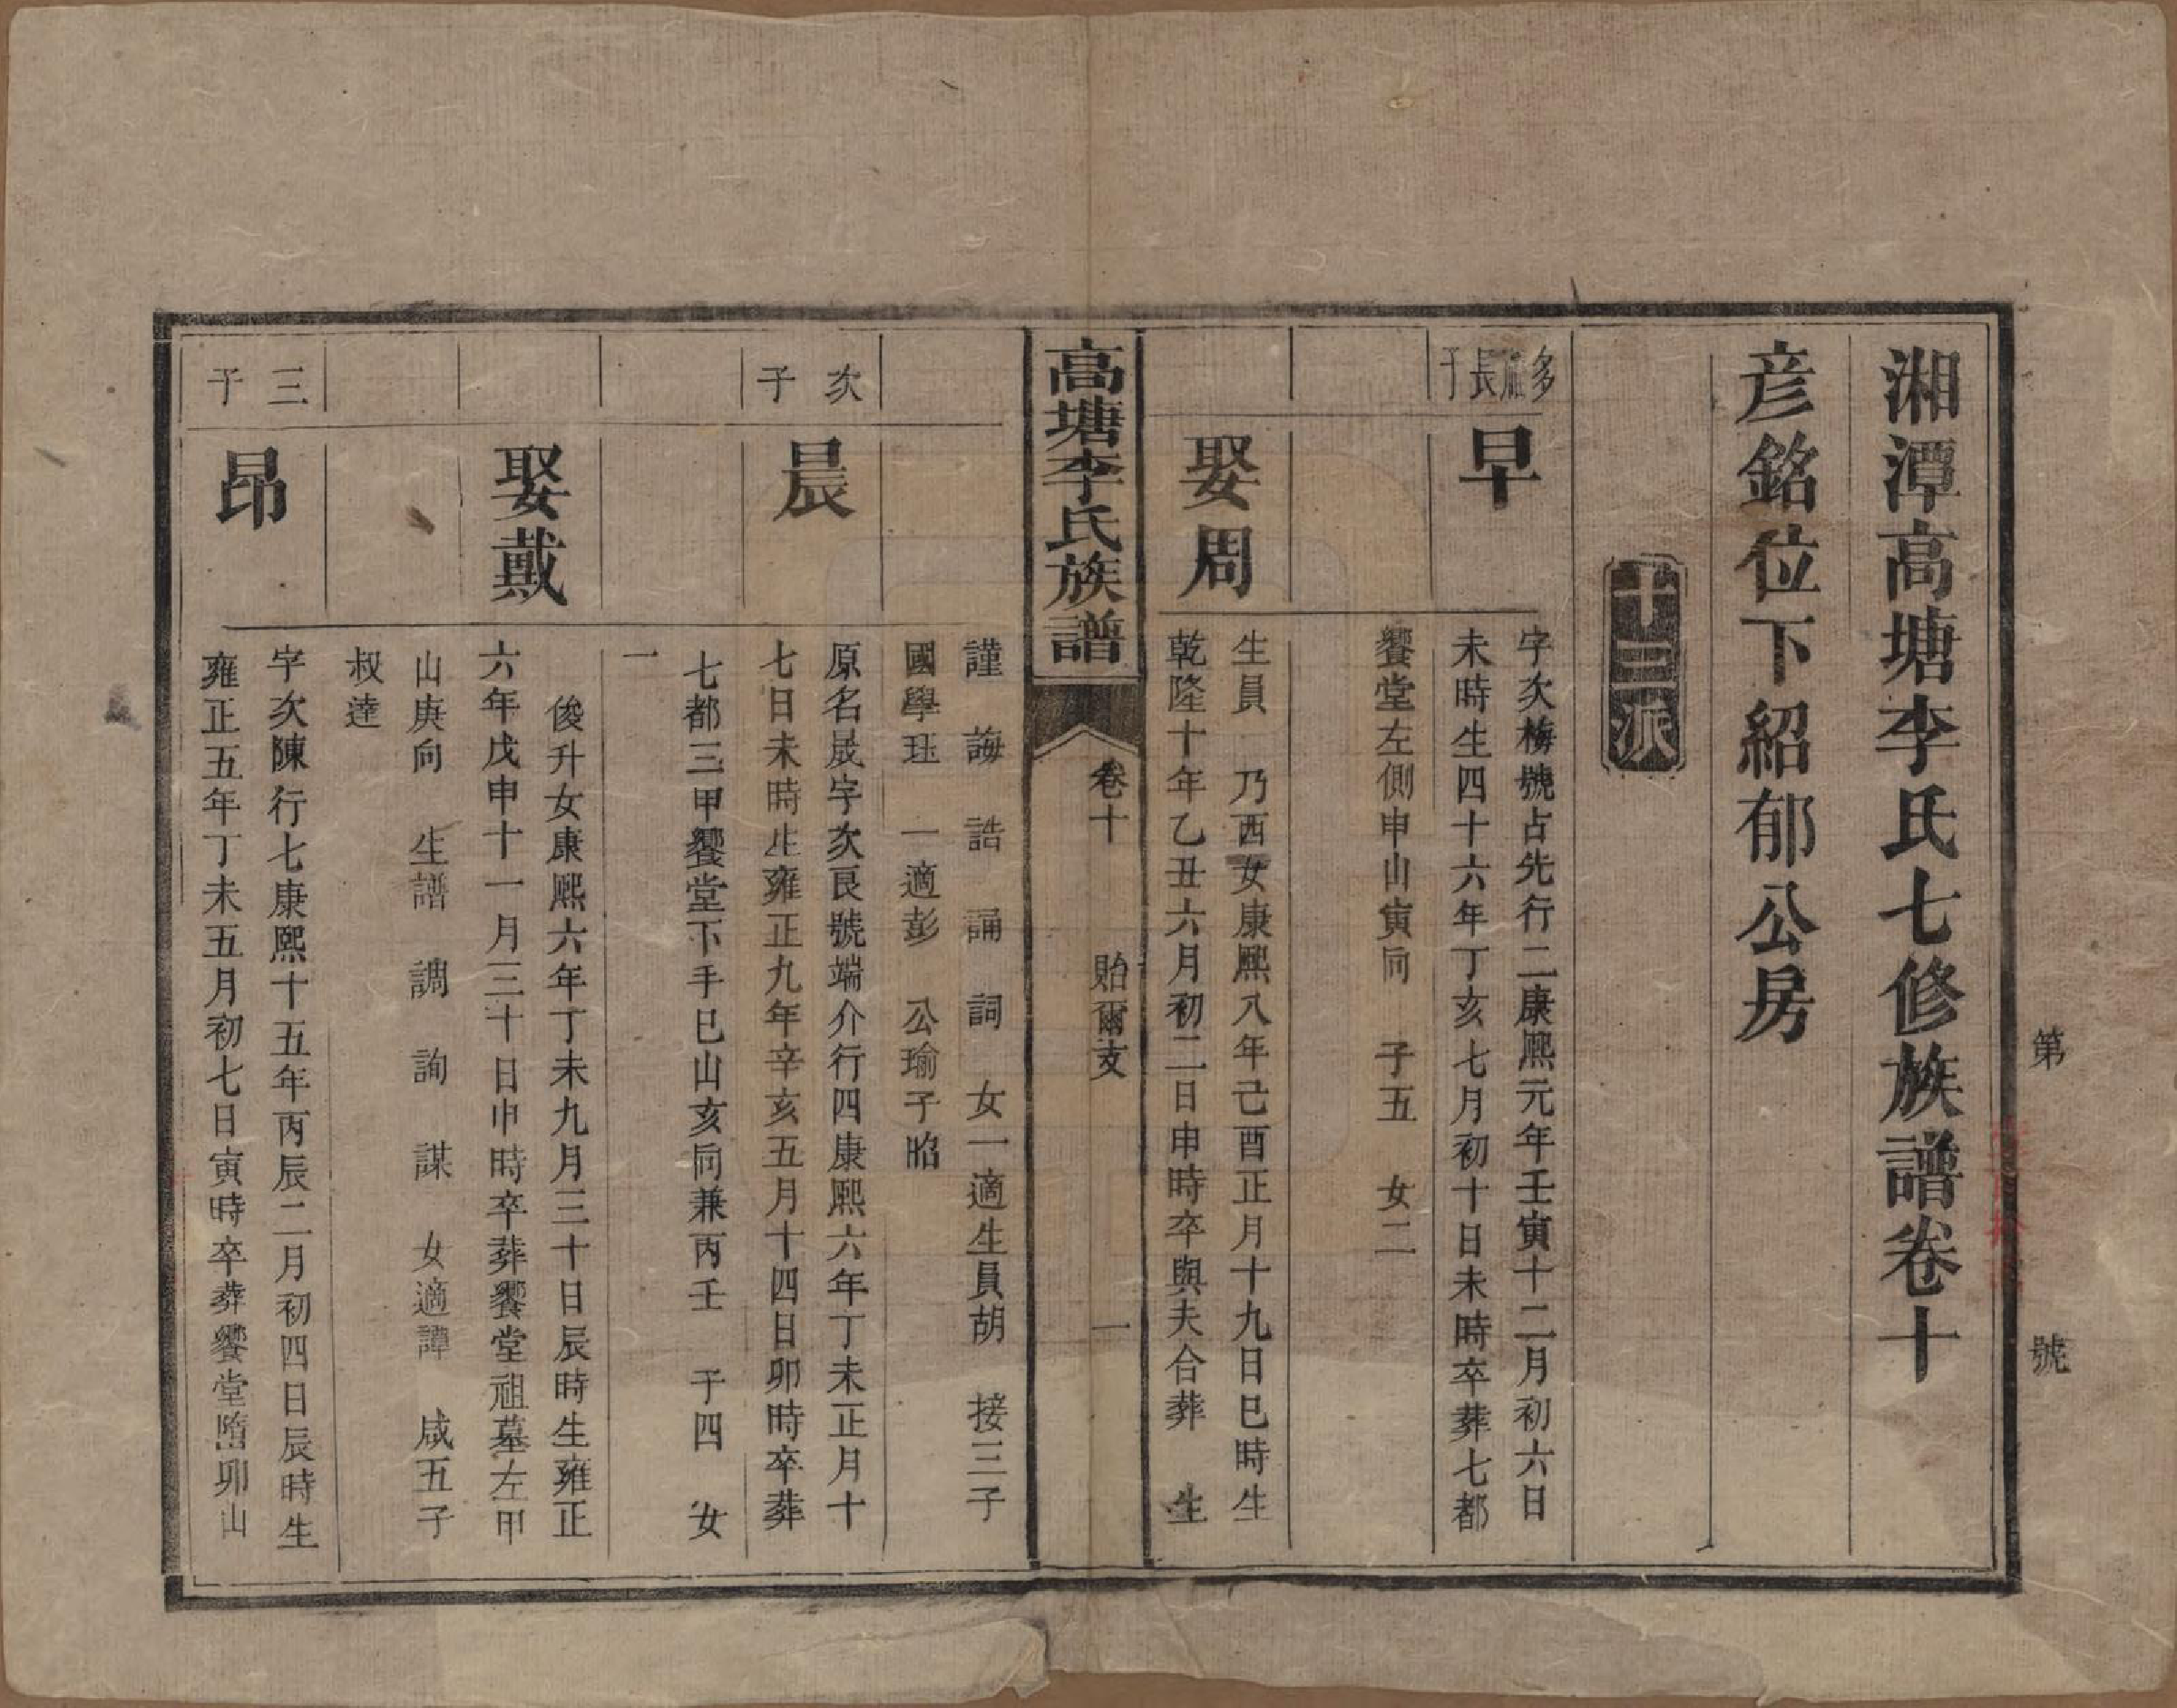 第 號
湘潭高塘李氏七修族譜卷十
彦銘位下紹郁公房
十三派
多疵長子
早
字次梅號占先行二康熙元年壬寅十二月初六日
未時生四十六年丁亥七月初十日未時卒葬七都
饗堂左側申山寅向 子五 女二
娶周
生員 乃西女康熙八年己酉正月十九日巳時生
乾隆十年乙丑六月初二日申時卒與夫合葬 生
高塘李氏族譜
卷十
貽爾支
一
謹 誨 誥 誦 詞 女一適生員胡 接三子
國學珏 一適彭 公瑜子昭
次子
晨
原名晟字次艮號端介行四康熙六年丁未正月十
七日未時生雍正九年辛亥五月十四日卯時卒葬
七都三甲饗堂下手巳山亥向兼丙壬 子四 女
一
娶戴
俊升女康熙六年丁未九月三十日辰時生雍正
六年戊申十一月三十日巾時卒葬饗堂祖墓左甲
山庚向 生譜 調 詢 謀 女適譚 咸五子
叔達
三子
昂
字次陳行七康熙十五年丙辰二月初四日辰時生
雍正五年丁未五月初七日寅時卒葬饗堂卯山